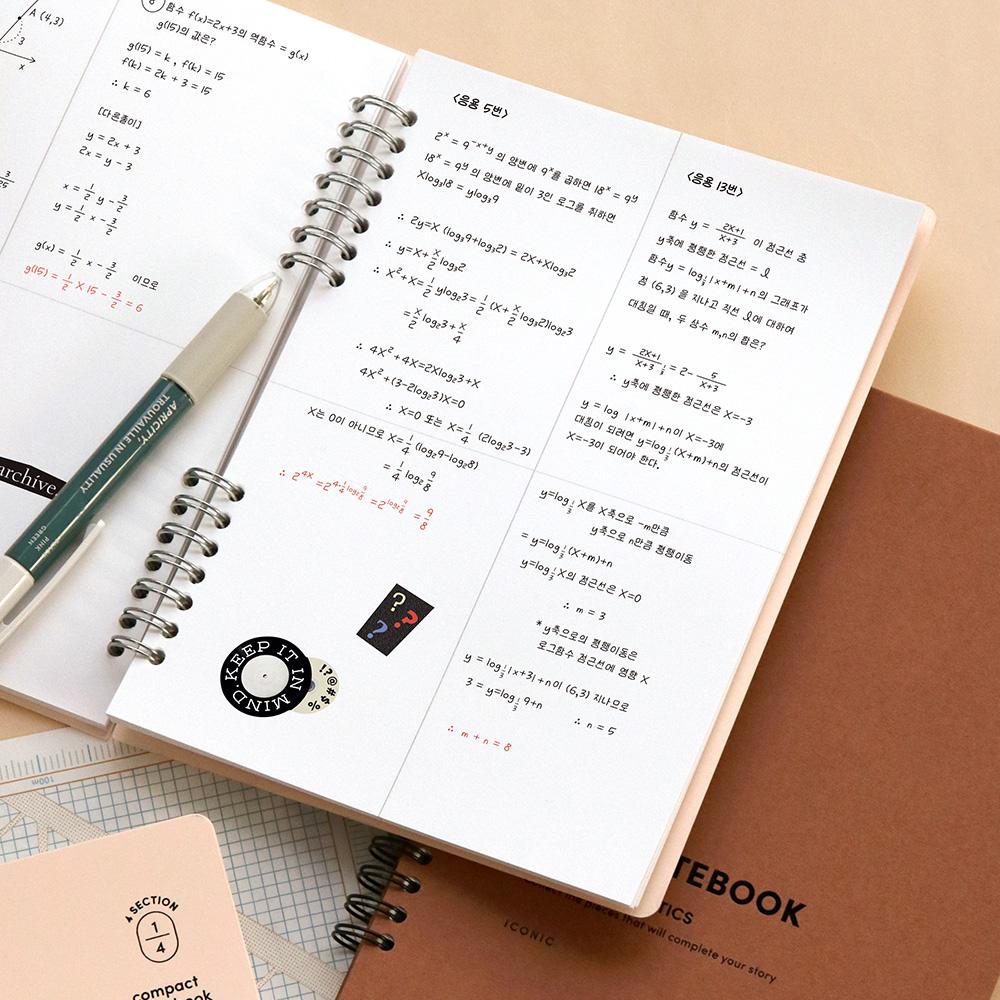 A (4,3)
3
x
3/25
8 함수 f(x)=2x+3의 역함수 = g(x)
g(15)의 값은?
g(15) = k , f(k) = 15
f(k) = 2k + 3 = 15
∴ k = 6
[다른풀이]
y = 2x + 3
2x = y - 3
x = 1/2 y - 3/2
y = 1/2 x - 3/2
g(x) = 1/2 x - 3/2 이므로
g(15) = 1/2 X 15 - 3/2 = 6
<응용 5번>
2^x = 9^-x+y 의 양변에 9^x을 곱하면 18^x = 9^y
18^x = 9^y 의 양변에 밑이 3인 로그를 취하면
Xlog₃18 = ylog₃9
∴ 2y=X (log₃9+log₃2) = 2X+Xlog₃2
∴ y=X+ X/2 log₃2
∴ X²+X= 1/2 ylog₂3 = 1/2 (X+ X/2 log₃2)log₂3
= X/2 log₂3 + X/4
∴ 4X²+4X=2Xlog₂3+X
4X²+(3-2log₂3)X=0
∴ X=0 또는 X= 1/4 (2log₂3-3)
X는 0이 아니므로 X= 1/4 (log₂9-log₂8)
= 1/4 log₂ 9/8
∴ 2^4X = 2^4·1/4 log₂ 9/8 = 2^log₂ 9/8 = 9/8
<응용 13번>
함수 y = 2X+1/X+3 이 점근선 중
y축에 평행한 점근선 = l
함수y = log 1/3 |x+m|+n의 그래프가
점 (6,3) 을 지나고 직선 l에 대하여
대칭일 때, 두 상수 m,n의 합은?
y = 2X+1/X+3 = 2- 5/X+3
∴ y축에 평행한 점근선은 X=-3
y = log 1/3 |x+m|+n이 X=-3에
대칭이 되려면 y=log 1/3 (X+m)+n의 점근선이
X=-3이 되어야 한다.
y=log 1/3 X를 X축으로 -m만큼
y축으로 n만큼 평행이동
= y=log 1/3 (X+m)+n
y=log 1/3 X의 점근선은 X=0
∴ m = 3
* y축으로의 평행이동은
로그함수 점근선에 영향 X
y = log 1/3 |x+3|+n이 (6,3) 지나므로
3 = y=log 1/3 9+n
∴ n = 5
∴ m + n = 8
APRICITY;
TROUVAILLE IN USUALITY
PINK
GREEN
archive.
KEEP IT IN MIND.
!?@#$%
???
100m
SECTION
1/4
compact
TEBOOK
TICS
the pieces that will complete your story
ICONIC